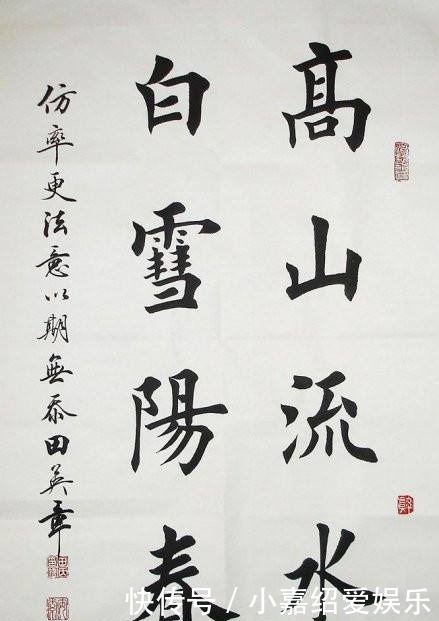 高山流水
白雪陽春
仿率更法意以期無忝田英章
快传号/小嘉绍爱娱乐